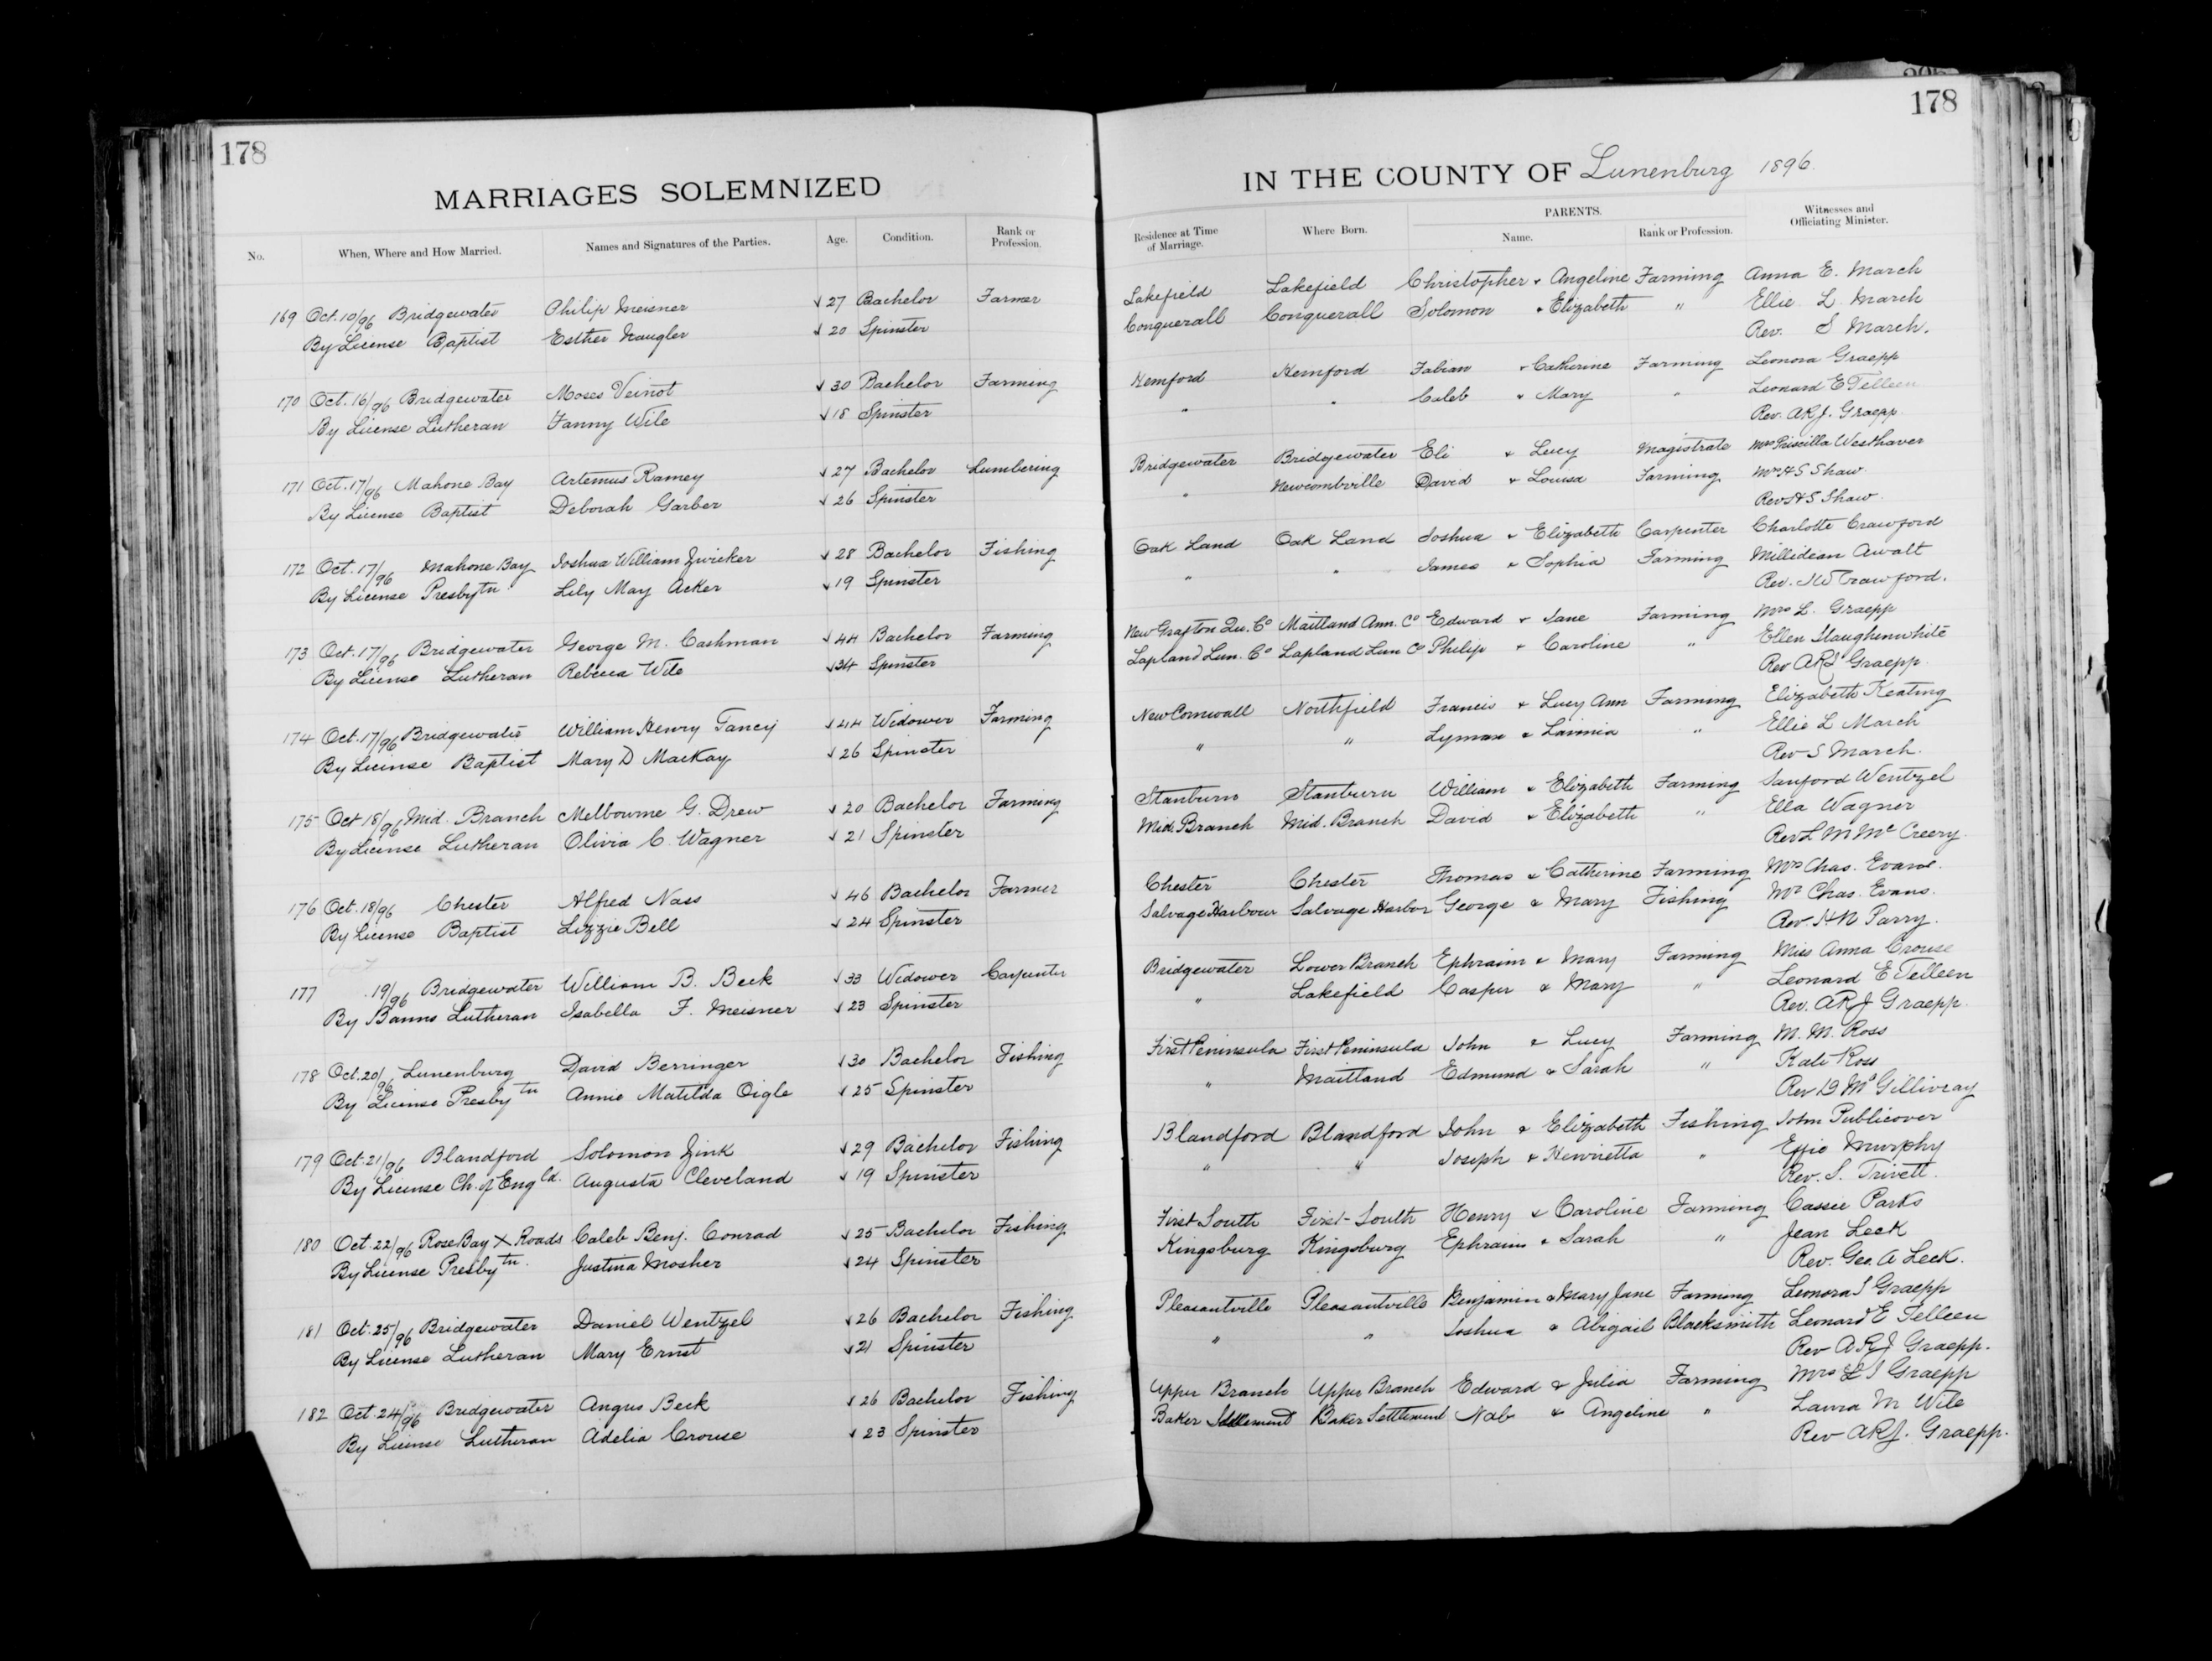 178
178
MARRIAGES SOLEMNIZED
IN THE COUNTY OF Lunenburg 1896.
No. When, Where and How Married. Names and Signatures of the Parties. Age. Condition. Rank or Profession. Residence at Time of Marriage. Where Born. PARENTS. Name. Rank or Profession. Witnesses and Officiating Minister.
169 Oct. 10/96 Bridgewater Philip Meisner 27 Bachelor Farmer Lakefield Lakefield Christopher & Angeline Farming Anna E. March
By License Baptist Esther Naugler 20 Spinster Conquerall Conquerall Solomon & Elizabeth " Ellie L. March
Rev. S March.
170 Oct. 16/96 Bridgewater Moses Veinot 30 Bachelor Farming Hemford Hemford Fabian & Catherine Farming Leonora Graepp
By License Lutheran Fanny Wile 18 Spinster " " Caleb & Mary " Leonard E Telleen
Rev. ARJ. Graepp.
171 Oct. 17/96 Mahone Bay Artemus Ramey 27 Bachelor Lumbering Bridgewater Bridgewater Eli & Lucy Magistrate Mrs Priscilla Westhaver
By License Baptist Deborah Garber 26 Spinster " Newcombville David & Louisa Farming Mrs H S Shaw.
Rev H S Shaw.
172 Oct. 17/96 Mahone Bay Joshua William Zwicker 28 Bachelor Fishing Oak Land Oak Land Joshua & Elizabeth Carpenter Charlotte Crawford
By License Presbytn Lily May Acker 19 Spinster " " James & Sophia Farming Millidean Awalt
Rev. J W Crawford.
173 Oct. 17/96 Bridgewater George M. Cashman 44 Bachelor Farming New Grafton Qu. Co Maitland Ann. Co Edward & Jane Farming Mrs L. Graepp
By License Lutheran Rebecca Wile 34 Spinster Lapland Lun. Co Lapland Lun Co Philip & Caroline " Ellen Slaughenwhite
Rev ARJ Graepp.
174 Oct. 17/96 Bridgewater William Henry Fancy 44 Widower Farming New Cornwall Northfield Francis & Lucy Ann Farming Elizabeth Keating
By License Baptist Mary D MacKay 26 Spinster " " Lyman & Lavinia " Ellie L March
Rev S March.
175 Oct 18/96 Mid. Branch Melbourne G. Drew 20 Bachelor Farming Stanburn Stanburn William & Elizabeth Farming Sanford Wentzel
By License Lutheran Olivia C. Wagner 21 Spinster Mid. Branch Mid. Branch David & Elizabeth " Ella Wagner
Rev L M McCreery.
176 Oct. 18/96 Chester Alfred Nass 46 Bachelor Farmer Chester Chester Thomas & Catherine Farming Mrs Chas. Evans.
By License Baptist Lizzie Bell 24 Spinster Salvage Harbour Salvage Harbor George & Mary Fishing Mr Chas. Evans.
Rev. H N Parry.
177 19/96 Bridgewater William B. Beck 33 Widower Carpenter Bridgewater Lower Branch Ephraim & Mary Farming Miss Anna Crouse
By Banns Lutheran Isabella F. Meisner 23 Spinster " Lakefield Casper & Mary " Leonard E Telleen
Rev. ARJ Graepp.
178 Oct. 20/96 Lunenburg David Berringer 30 Bachelor Fishing First Peninsula First Peninsula John & Lucy Farming M. M. Ross
By License Presbytn Annie Matilda Oigle 25 Spinster " Maitland Edmund & Sarah " Kate Ross
Rev D McGillivray
179 Oct. 21/96 Blandford Solomon Zink 29 Bachelor Fishing Blandford Blandford John & Elizabeth Fishing John Publicover
By License Ch. of Engld. Augusta Cleveland 19 Spinster " " Joseph & Henrietta " Effie Murphy
Rev. S. Trivett.
180 Oct. 22/96 Rose Bay X Roads Caleb Benj. Conrad 25 Bachelor Fishing First South First-South Henry & Caroline Farming Cassie Parks
By License Presbytn. Justina Mosher 24 Spinster Kingsburg Kingsburg Ephraim & Sarah " Jean Leck
Rev. Geo. A Leck.
181 Oct. 25/96 Bridgewater Daniel Wentzel 26 Bachelor Fishing Pleasantville Pleasantville Benjamin & Mary Jane Farming Leonora S Graepp
By License Lutheran Mary Ernst 21 Spinster " " Joshua & Abigail Blacksmith Leonard E Telleen
Rev ARJ Graepp.
182 Oct. 24/96 Bridgewater Angus Beck 26 Bachelor Fishing Upper Branch Upper Branch Edward & Julia Farming Mrs L S Graepp
By License Lutheran Adelia Crouse 23 Spinster Baker Settlement Baker Settlement & Angeline " Laura M Wile
Rev ARJ. Graepp.